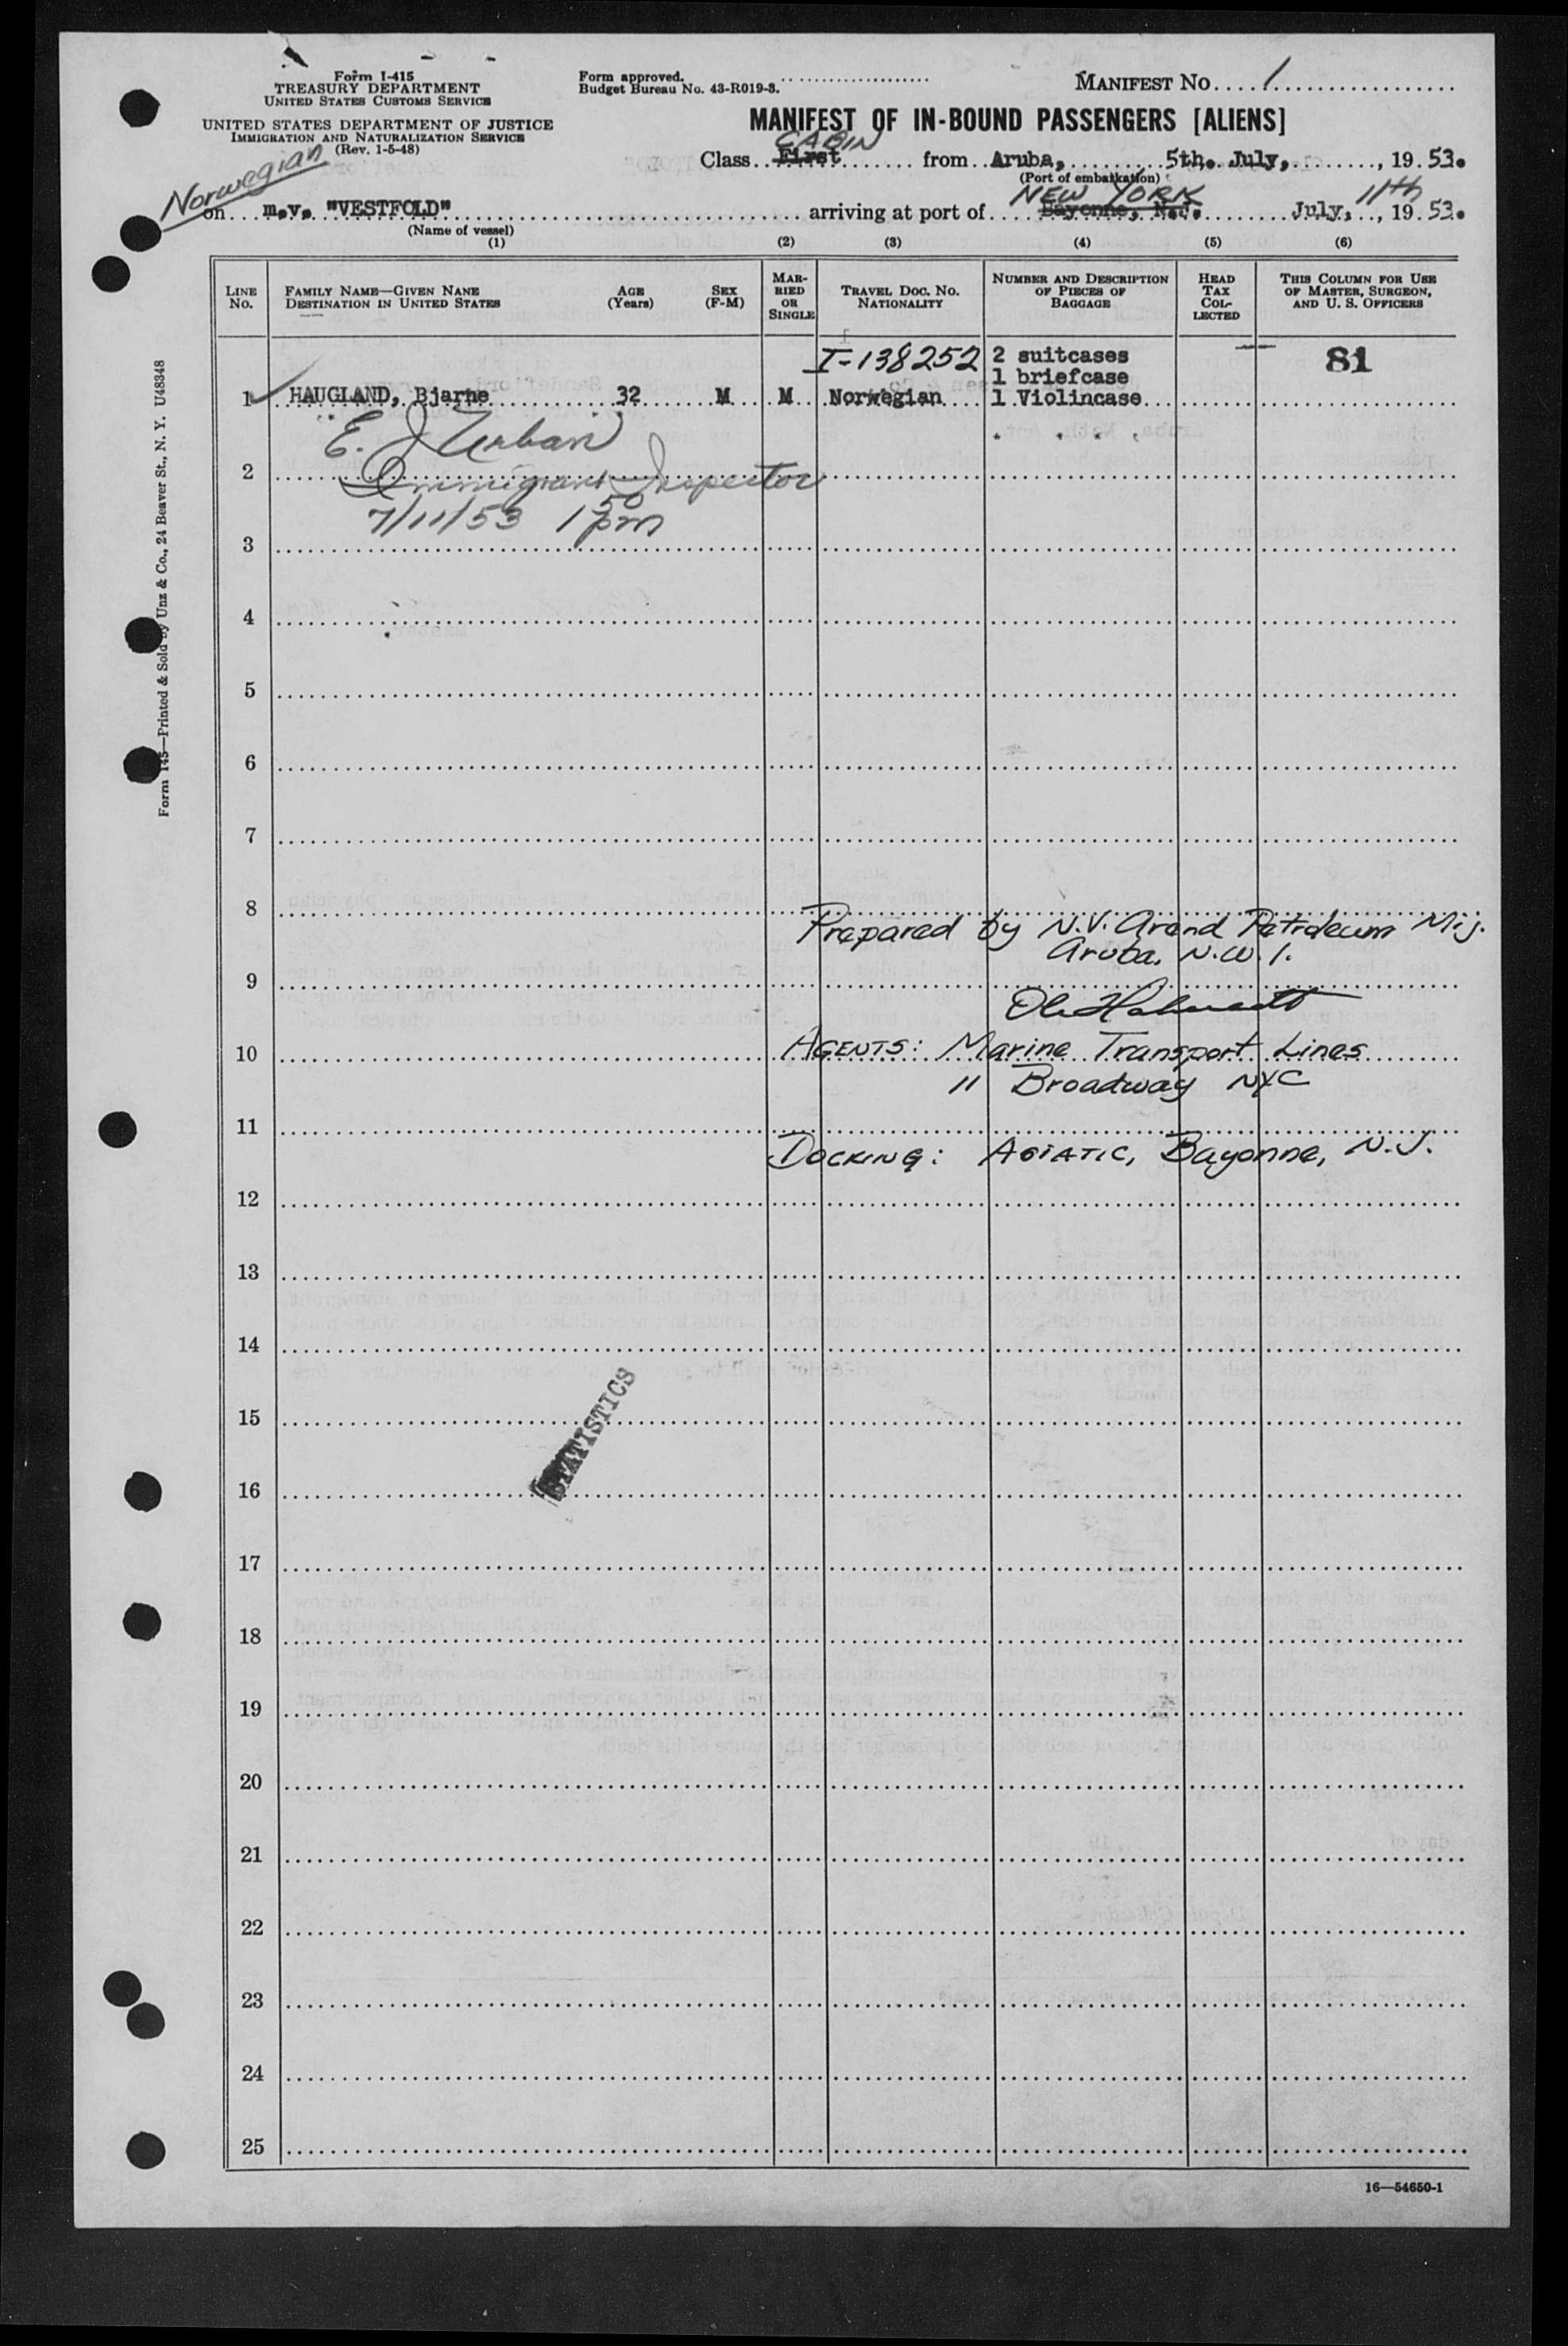 Form I-415
TREASURY DEPARTMENT
UNITED STATES CUSTOMS SERVICE
UNITED STATES DEPARTMENT OF JUSTICE
IMMIGRATION AND NATURALIZATION SERVICE
(Rev. 1-5-48)
Form approved.
Budget Bureau No. 43-R019-3.
MANIFEST NO. 1
MANIFEST OF IN-BOUND PASSENGERS [ALIENS]
CABIN
Class First from Aruba, 5th. July, , 19 53.
(Port of embarkation)
Norwegian
NEW YORK 11th
on m.v. "VESTFOLD" arriving at port of Bayonne, N.J. July, , 19 53.
(Name of vessel)
(1) (2) (3) (4) (5) (6)
LINE No. FAMILY NAME—GIVEN NANE DESTINATION IN UNITED STATES AGE (Years) SEX (F-M) MARRIED OR SINGLE TRAVEL DOC. NO. NATIONALITY NUMBER AND DESCRIPTION OF PIECES OF BAGGAGE HEAD TAX COLLECTED THIS COLUMN FOR USE OF MASTER, SURGEON, AND U. S. OFFICERS
I-138252 2 suitcases — 81
1 briefcase
1 HAUGLAND, Bjarne 32 M M Norwegian 1 Violincase
E. J Urban
2 Immigrant Inspector
7/11/53 1 50 pm
3
4
5
6
7
8
Prepared by N.V. Arend Petroleum Mij.
Aruba, N.W.I.
9
10 AGENTS: Marine Transport Lines
11 Broadway NYC
11
DOCKING: ASIATIC, Bayonne, N.J.
12
13
14
15
STATISTICS
16
17
18
19
20
21
22
23
24
25
16—54650-1
Form 145—Printed & Sold by Unz & Co., 24 Beaver St., N. Y. U48348